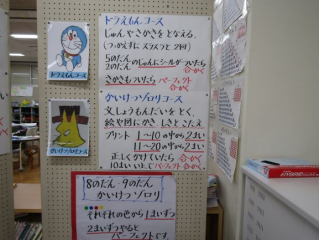 ドラえもんコース
じゅんやさかさをとなえる。
(つっかえずにスラスラと2回)
5のだん
2のだん のじゅんにシールがついたら
合かく
さかさもついたらパーフェクト
合かく
ドラえもんコース
かいけつゾロリコース
文しょうもんだいをとく。
絵や図にかき しきとこたえ
プリント 1〜10の中から2まい
11〜20の中から2まい
正しくかけていたら 合かく
10まいいじょうで パーフェクト
合かく
かいけつゾロリコース
8のだん・9のだん
かいけつゾロリ
それぞれの色から1まいずつ
2まいずつやると
パーフェクトです